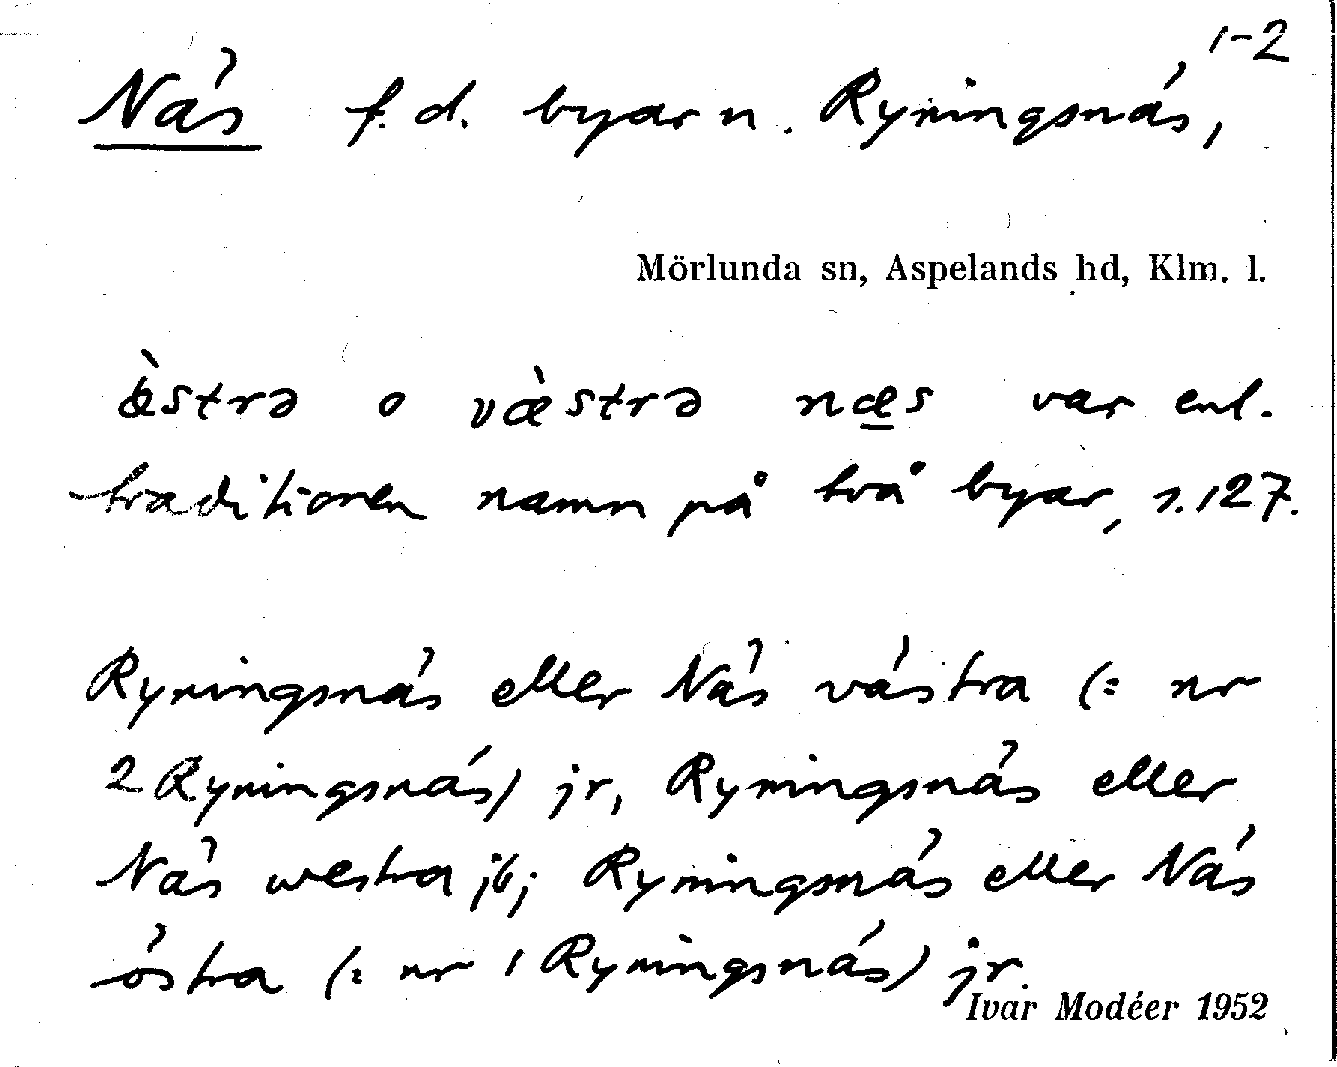 1-2
Näs f.d. byarn. Ryningsnäs,
Mörlunda sn, Aspelands hd, Klm. l.
æ̀strə o væ̀strə næ̲s var enl.
traditionen namn på två byar, s. 127.
Ryningsnäs eller Näs västra (= nr
2 Ryningsnäs) jr, Ryningsnäs eller
Näs westra jb; Ryningsnäs eller Näs
östra (= nr 1 Ryningsnäs) jr.
Ivar Modéer 1952